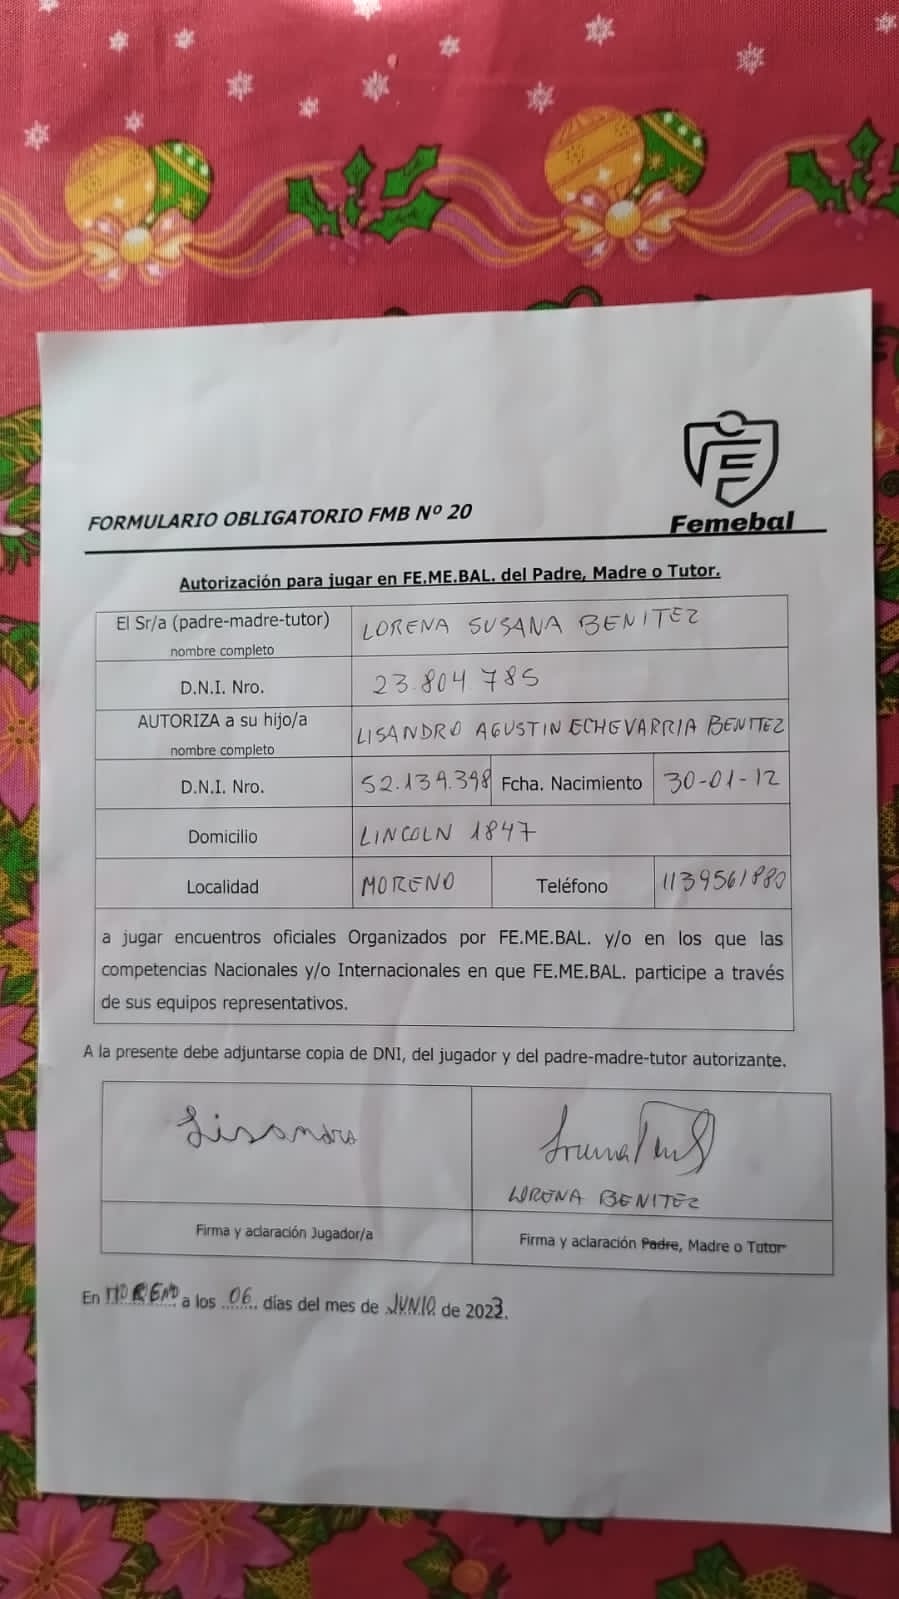 Femebal
FORMULARIO OBLIGATORIO FMB Nº 20
Autorización para jugar en FE.ME.BAL. del Padre, Madre o Tutor.
El Sr/a (padre-madre-tutor)
nombre completo
LORENA SUSANA BENITEZ
D.N.I. Nro.
23.804.785
AUTORIZA a su hijo/a
nombre completo
LISANDRO AGUSTIN ECHEVARRIA BENITEZ
D.N.I. Nro.
52.139.398
Fcha. Nacimiento
30-01-12
Domicilio
LINCOLN 1847
Localidad
MORENO
Teléfono
1139561880
a jugar encuentros oficiales Organizados por FE.ME.BAL. y/o en los que las
competencias Nacionales y/o Internacionales en que FE.ME.BAL. participe a través
de sus equipos representativos.
A la presente debe adjuntarse copia de DNI, del jugador y del padre-madre-tutor autorizante.
Lisandro
LORENA BENITEZ
Firma y aclaración Jugador/a
Firma y aclaración Padre, Madre o Tutor
En MORENO a los 06 días del mes de JUNIO de 2023.